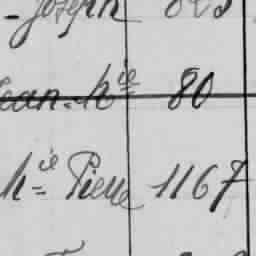 - Joseph
Jean-h^ie 80
h^ie Pierre 1167